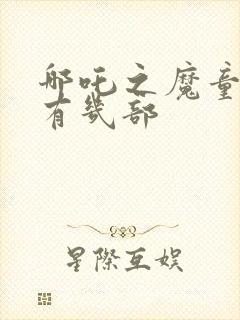 哪吒之魔童
有幾部
星際互娛